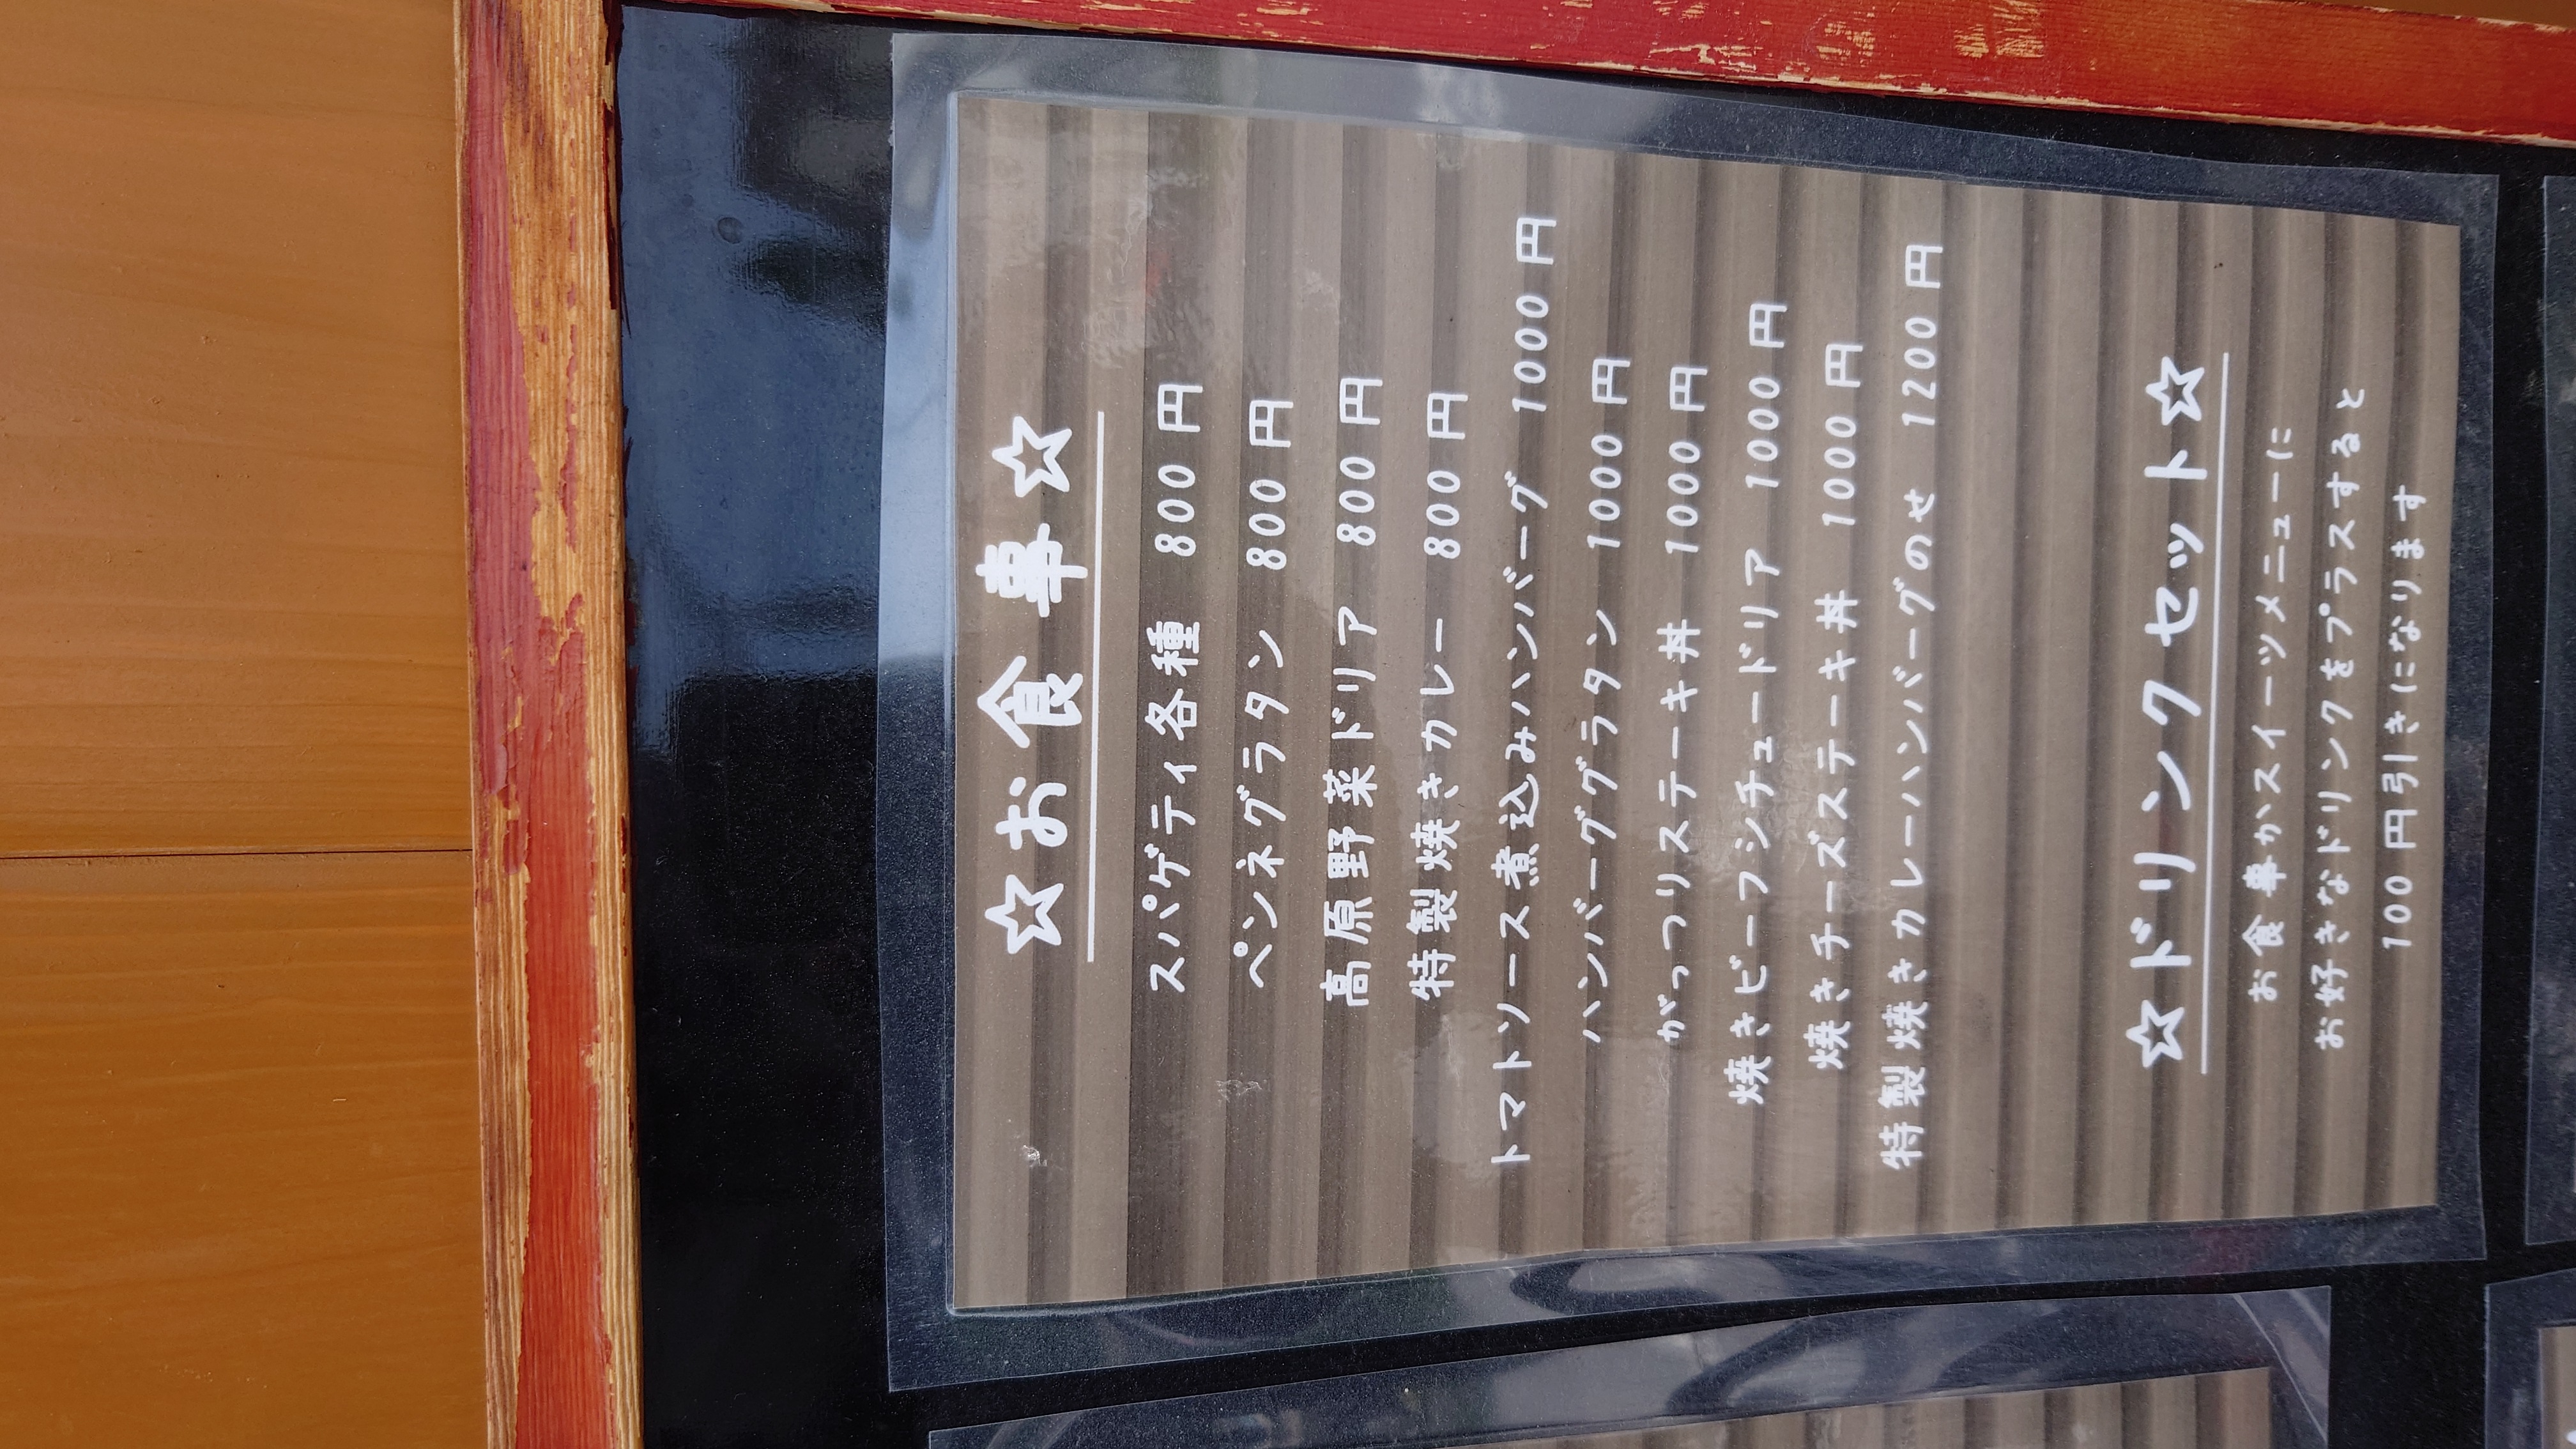 ☆お食事☆
スパゲティ各種 800円
ペンネグラタン 800円
高原野菜ドリア 800円
特製焼きカレー 800円
トマトソース煮込みハンバーグ 1000円
ハンバーググラタン 1000円
がっつりステーキ丼 1000円
焼きビーフシチュードリア 1000円
焼きチーズステーキ丼 1000円
特製焼きカレーハンバーグのせ 1200円
☆ドリンクセット☆
お食事かスイーツメニューに
お好きなドリンクをプラスすると
100円引きになります